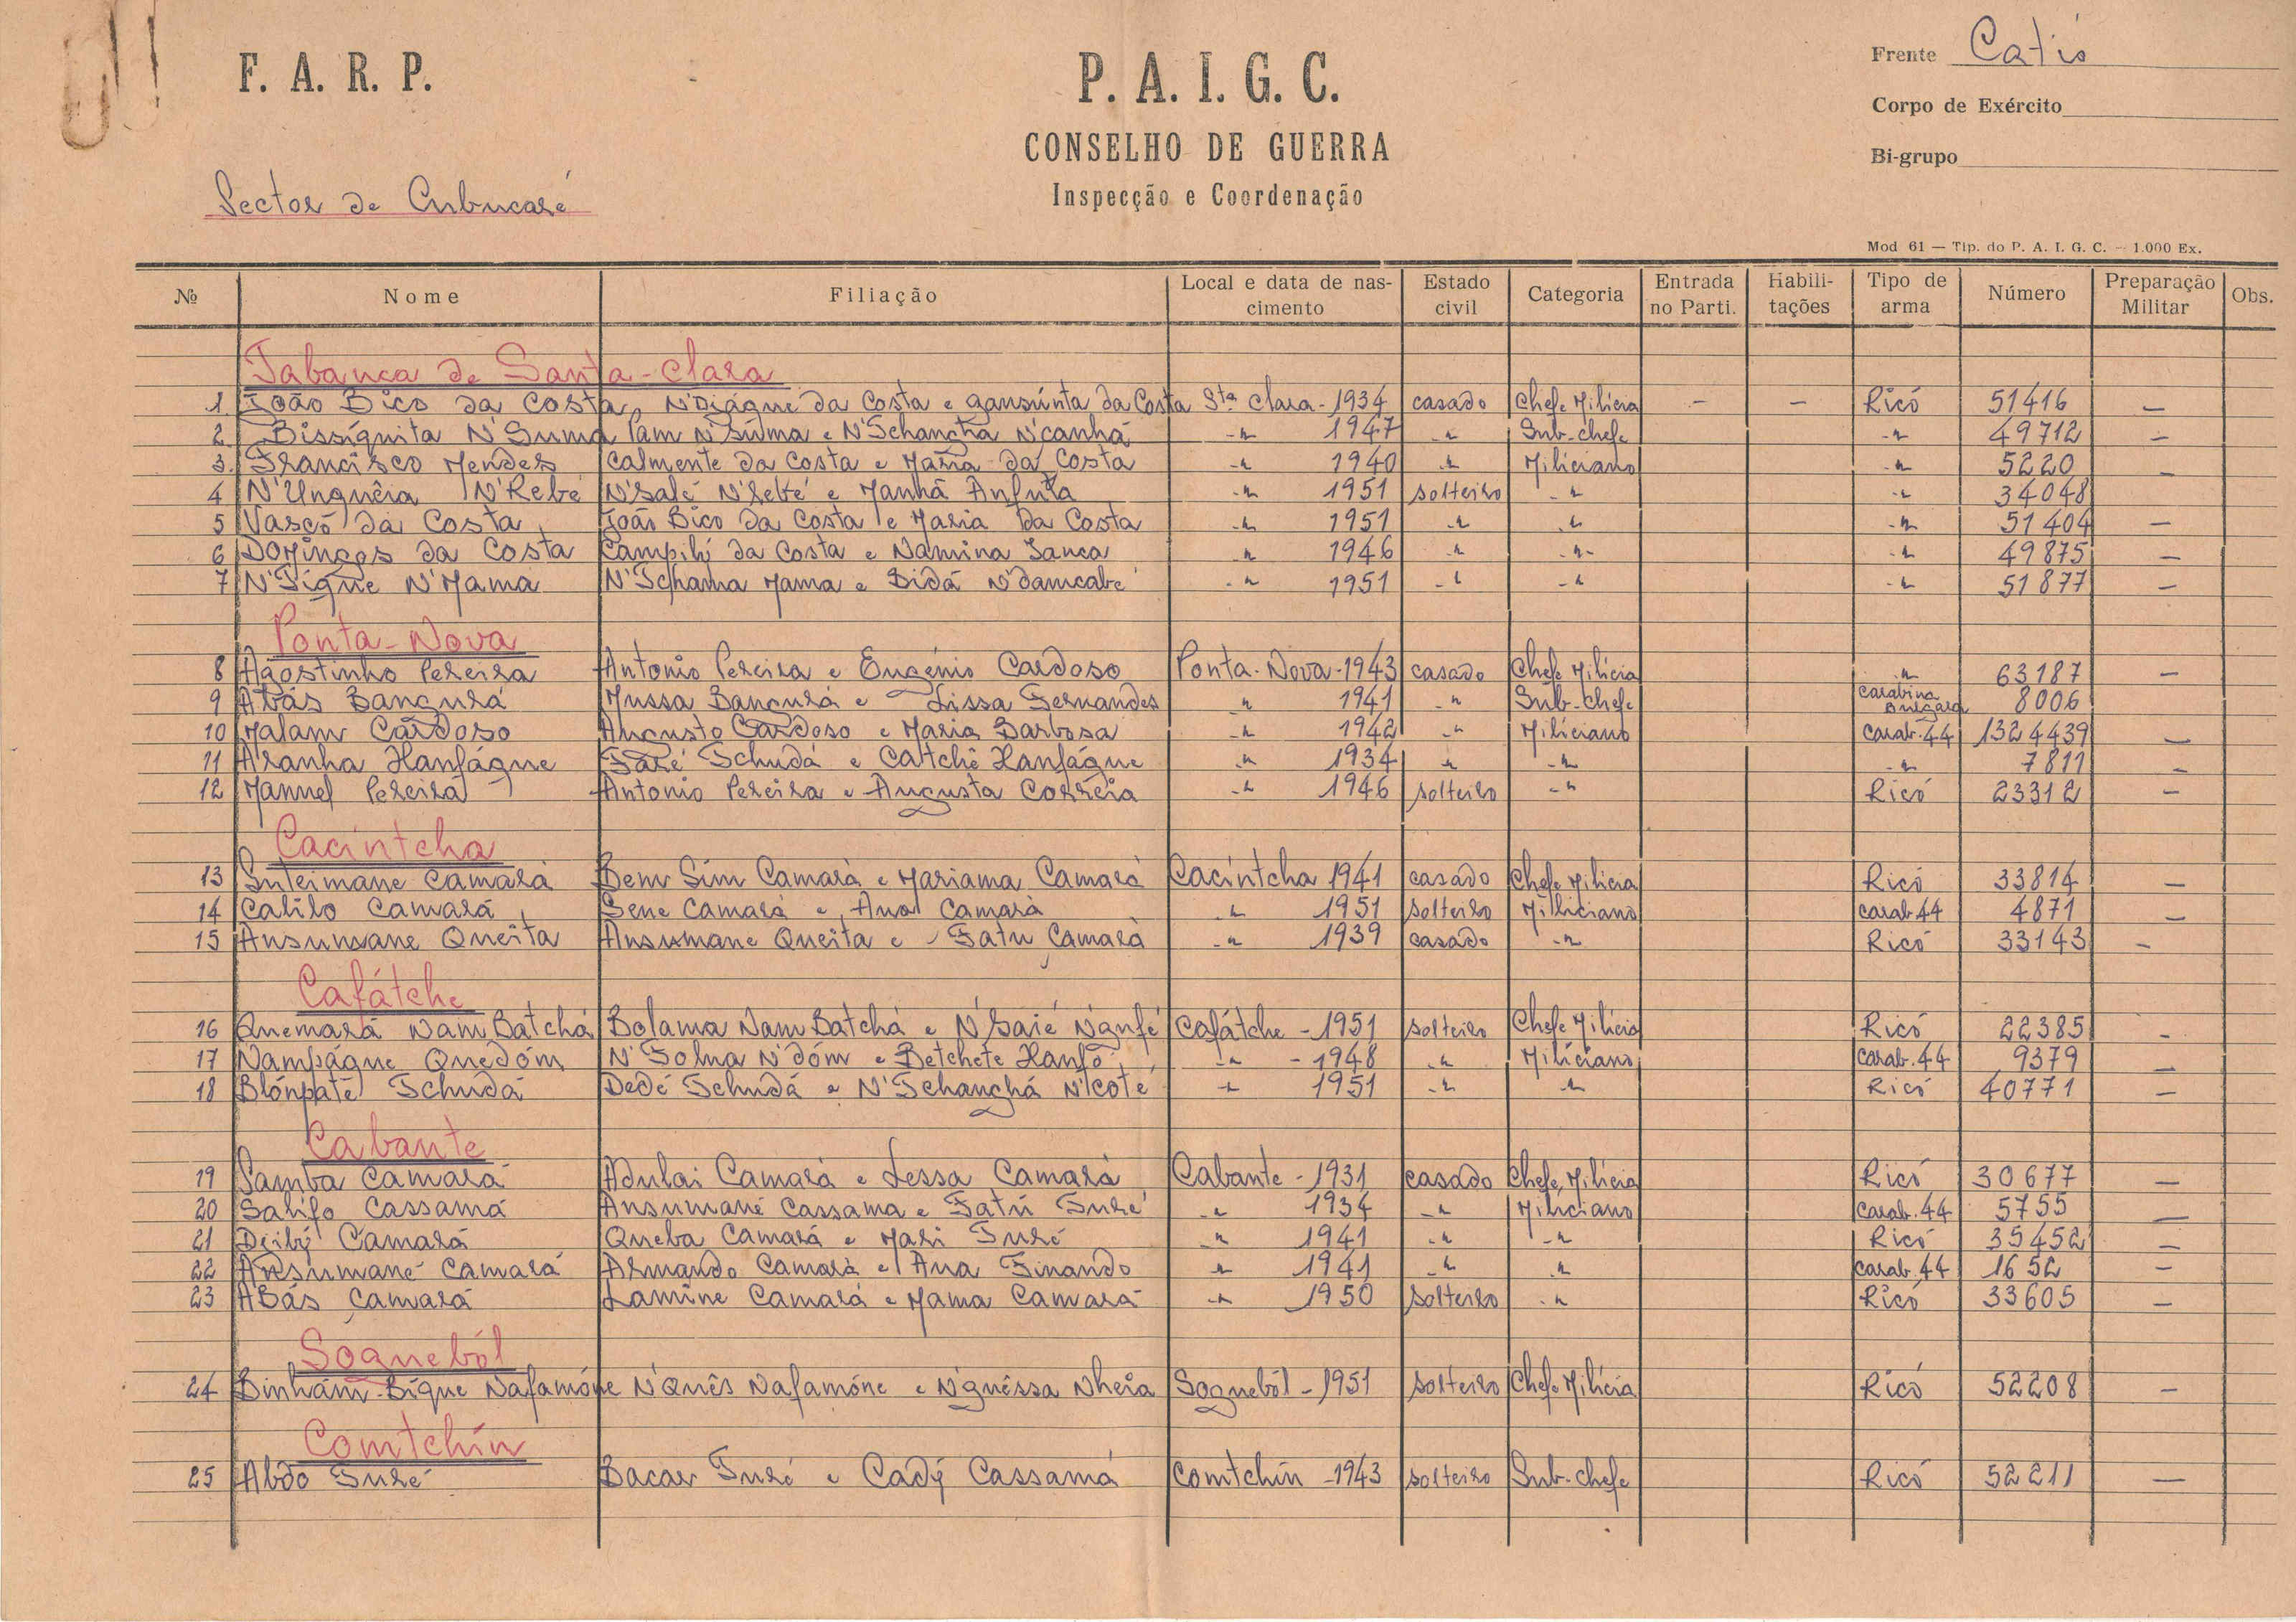 F. A. R. P.
P. A. I. G. C.
CONSELHO DE GUERRA
Inspecção e Coordenação
Frente Catió
Corpo de Exército
Bi-grupo
Sector de Cubucaré
Mod 61 — Tip. do P. A. I. G. C. — 1.000 Ex.
Nº Nome Filiação Local e data de nascimento Estado civil Categoria Entrada no Parti. Habilitações Tipo de arma Número Preparação Militar Obs.
Tabanca de Santa-Clara
1 João Bico da Costa, N'Diágue da Costa e gansúnta da Costa Sta Clara - 1934 casado Chefe Milícia — — Ricó 51416 —
2 Bissíguita N'Suma Iam N'Suma e N'Tchanchá N'canhá -"- 1947 -"- Sub-chefe -"- 49712 —
3 Francisco Mendes Calmente da Costa e Maria da Costa -"- 1940 -"- Miliciano -"- 5220 —
4 N'Unguêia N'Rebé N'Salé N'Rebé e Manhã Anfula -"- 1951 solteiro -"- -"- 34048
5 Vasco da Costa João Bico da Costa e Maria da Costa -"- 1951 -"- -"- -"- 51404 —
6 Domingos da Costa Campihi da Costa e Namina Sanca -"- 1946 -"- -"- -"- 49875 —
7 N'Tigue N'Mama N'Tchama Mama e Bidá N'damcabe -"- 1951 -"- -"- -"- 51877 —
Ponta-Nova
8 Agostinho Pereira Antonio Pereira e Eugénio Cardoso Ponta-Nova-1943 casado Chefe Milícia -"- 63187 —
9 Abás Bangurá Mussa Bangurá e Lissa Fernandes -"- 1941 -"- Sub-chefe carabina bulgara 8006
10 Malam Cardoso Augusto Cardoso e Maria Barbosa -"- 1942 -"- Miliciano carab.44 1324439 —
11 Aranha Hanfágue Taré Tchudá e Catchê Hanfágue -"- 1934 -"- -"- -"- 7811 —
12 Manuel Pereira Antonio Pereira e Augusta Corrêia -"- 1946 solteiro -"- Ricó 23312 —
Cacintcha
13 Suleimane Camará Bem Sim Camará e Mariama Camará Cacintcha 1941 casado Chefe Milícia Ricó 33814 —
14 Calilo Camará Sene Camará e Ana Camará -"- 1951 solteiro Miliciano carab 44 4871 —
15 Ansumane Queita Ansumane Queita e Fatu Camará -"- 1939 casado -"- Ricó 33143 —
Cafátche
16 Quemará Nam Batchá Bolama Nam Batchá e N'Saié N'gufé Cafátche - 1951 solteiro Chefe Milícia Ricó 22385 —
17 Nampágue Quedóm N'Tolna N'dóm e Betchete Hanfó -"- - 1948 -"- Miliciano carab.44 9379 —
18 Blónpaté Tchudá Dedé Tchudá e N'Tchanghá N'cote -"- 1951 -"- -"- Ricó 40771 —
Cabante
19 Samba Camará Adulai Camará e Lessa Camará Cabante - 1931 casado Chefe Milícia Ricó 30677 —
20 Salifo Cassamá Ansumané Cassama e Fatú Turé -"- 1934 -"- Miliciano carab.44 5755 —
21 Djiby Camará Queba Camará e Mari Turé -"- 1941 -"- -"- Ricó 35452 —
22 Ansumané Camará Armando Camará e Ana Finando -"- 1941 -"- -"- carab.44 1652 —
23 Abás Camará Lamine Camará e Mama Camará -"- 1950 solteiro -"- Ricó 33605 —
Sogueból
24 Binhám-Bique Nafamóne N'Quês Nafamóne e N'guêssa Nheia Sogueból - 1951 solteiro Chefe Milícia Ricó 52208 —
Comtchin
25 Abdo Turé Bacar Turé e Cady Cassamá Comtchin - 1943 solteiro Sub-chefe Ricó 52211 —